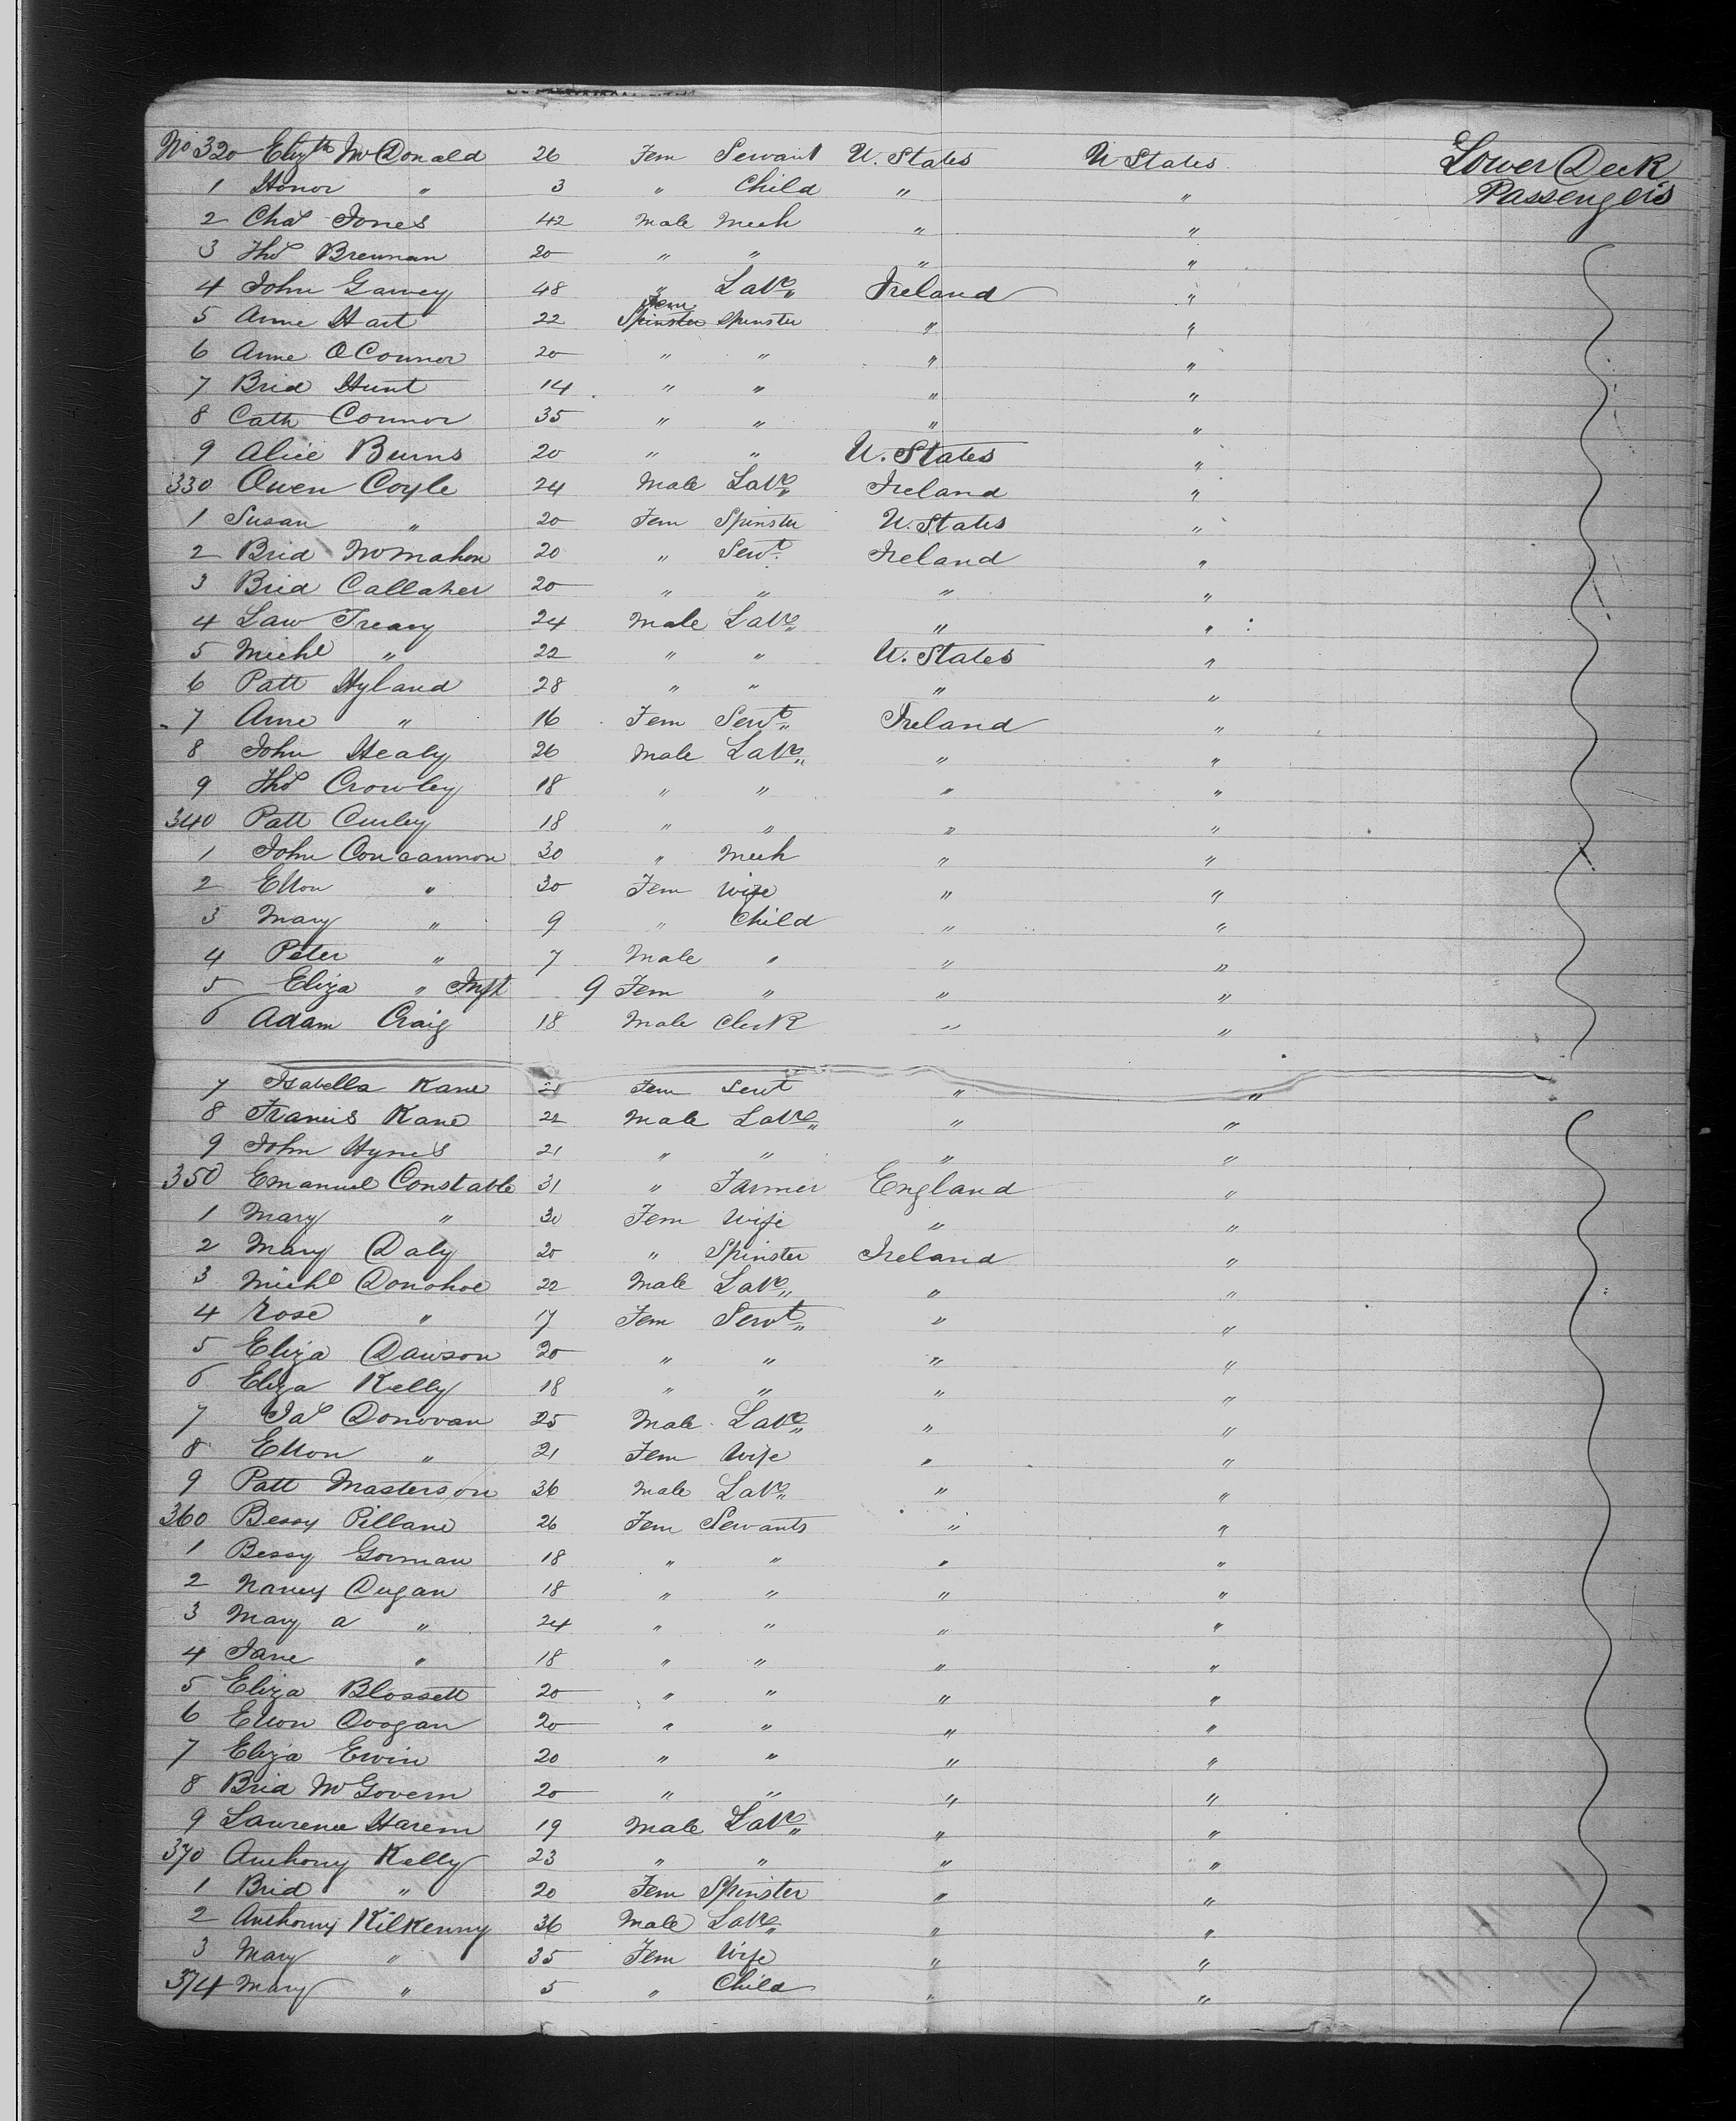 No 320 Elizth McDonald 26 Fem Servant U. States U States Lower Deck
Passengers
1 Honor " 3 " Child " "
2 Chas Jones 42 Male Mech " "
3 Thos Brennan 20 " " " "
4 John Garvey 48 " Labr Ireland "
5 Anne Hart 22 Spinster Fem Spinster " "
6 Anne OConnor 20 " " " "
7 Brid Hunt 14 " " " "
8 Cath Connor 35 " " " "
9 Alice Burns 20 " " U. States "
330 Owen Coyle 24 Male Labr Ireland "
1 Susan " 20 Fem Spinster U. States "
2 Brid McMahon 20 " Servt Ireland "
3 Brid Callaher 20 " " " "
4 Law Treacy 24 Male Labr " "
5 Michl " 22 " " U. States "
6 Patt Hyland 28 " " " "
7 Anne " 16 Fem Servt Ireland "
8 John Healy 26 Male Labr " "
9 Thos Crowley 18 " " " "
340 Patt Curley 18 " " " "
1 John Concannon 30 " Mech " "
2 Ellen " 30 Fem Wife " "
3 Mary " 9 " Child " "
4 Peter " 7 Male " " "
5 Eliza " Inft 9 Fem " " "
6 Adam Craig 18 Male Clerk " "
7 Isabella Kane 21 Fem Servt " "
8 Francis Kane 22 Male Labr " "
9 John Hynes 21 " " " "
350 Emanuel Constable 31 " Farmer England "
1 Mary " 30 Fem Wife " "
2 Mary Daly 20 " Spinster Ireland "
3 Michl Donohoe 22 Male Labr " "
4 Rose " 17 Fem Servt " "
5 Eliza Dawson 20 " " " "
6 Eliza Kelly 18 " " " "
7 Jas Donovan 25 Male Labr " "
8 Ellen " 21 Fem Wife " "
9 Patt Masterson 36 Male Labr " "
360 Bessy Pillane 26 Fem Servants " "
1 Bessy Gorman 18 " " " "
2 Nancy Dugan 18 " " " "
3 Mary a " 24 " " " "
4 Jane " 18 " " " "
5 Eliza Blossett 20 " " " "
6 Ellen Doogan 20 " " " "
7 Eliza Erwin 20 " " " "
8 Brid McGovern 20 " " " "
9 Lawrence Harem 19 Male Labr " "
370 Anthony Kelly 23 " " " "
1 Brid " 20 Fem Spinster " "
2 Anthony Kilkenny 36 Male Labr " "
3 Mary " 35 Fem Wife " "
374 Mary " 5 " Child " "